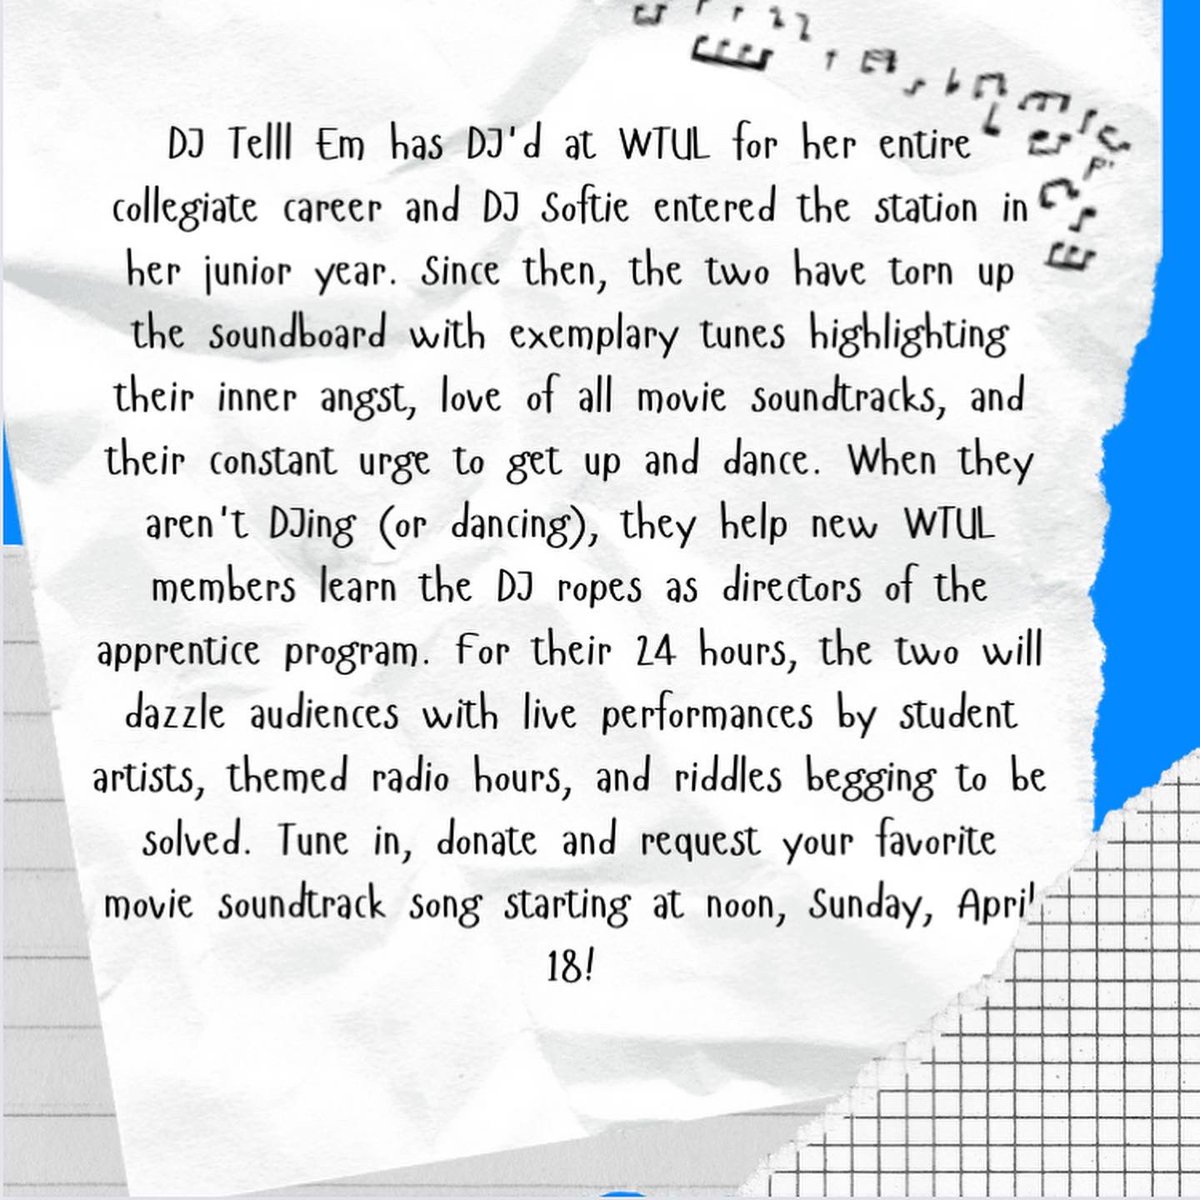 DJ Telll Em has DJ'd at WTUL for her entire
collegiate career and DJ Softie entered the station in
her junior year. Since then, the two have torn up
the soundboard with exemplary tunes highlighting
their inner angst, love of all movie soundtracks, and
their constant urge to get up and dance. When they
aren't DJing (or dancing), they help new WTUL
members learn the DJ ropes as directors of the
apprentice program. For their 24 hours, the two will
dazzle audiences with live performances by student
artists, themed radio hours, and riddles begging to be
solved. Tune in, donate and request your favorite
movie soundtrack song starting at noon, Sunday, April
18!